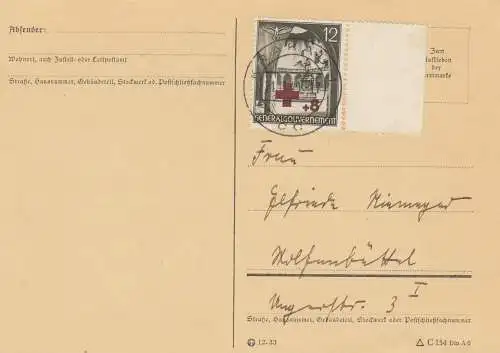 Absender:
Wohnort, auch Zustell- oder Leitpostamt
Straße, Hausnummer, Gebäudeteil, Stockwerk od. Postschließfachnummer
12
+8
GENERALGOUVERNEMENT
Zum
der
Frau
Elfriede Niemeyer
Wolfenbüttel
Ungerstr. 3 I
Straße, Hausnummer, Gebäudeteil, Stockwerk oder Postschließfachnummer
12.33
C 154 Din A 6